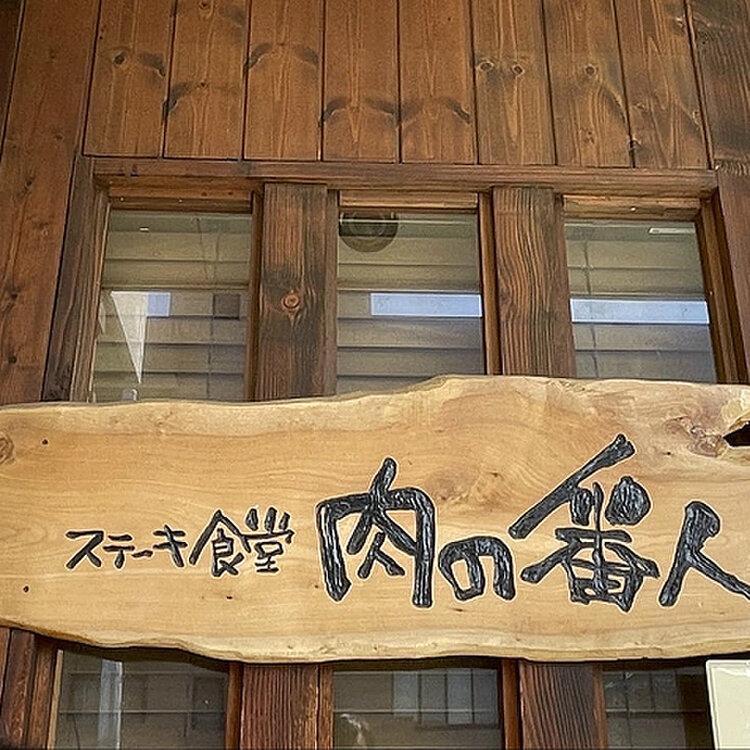 ステーキ食堂 肉の番人